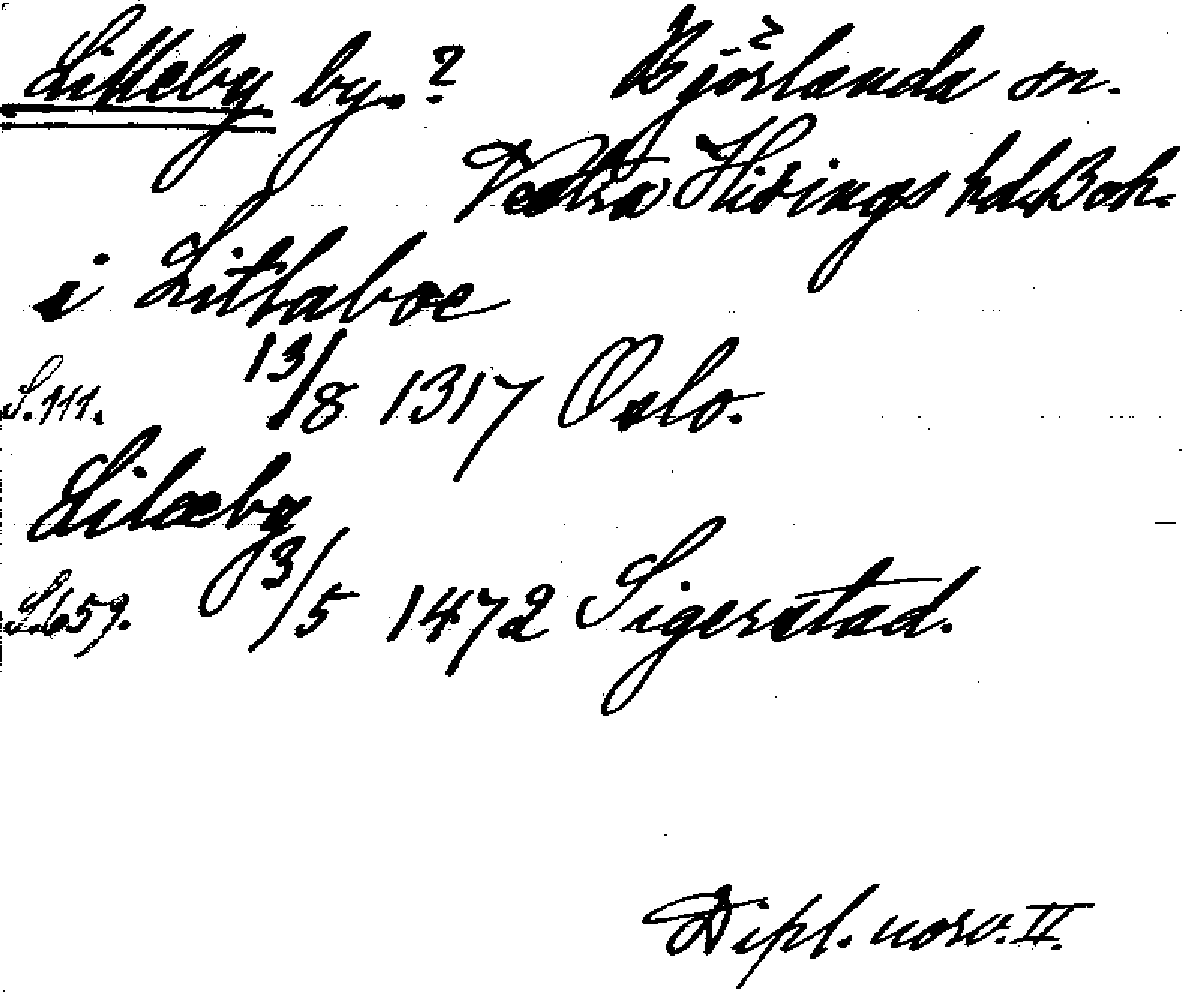 Litteby by.? Björlanda sn.
Västra Hisings hd. Boh.
i Litlaboe
S. 111. 13/8 1317 Oslo.
Lilæby
S. 659. 13/5 1472 Sigerstad.
Dipl. norv. II.